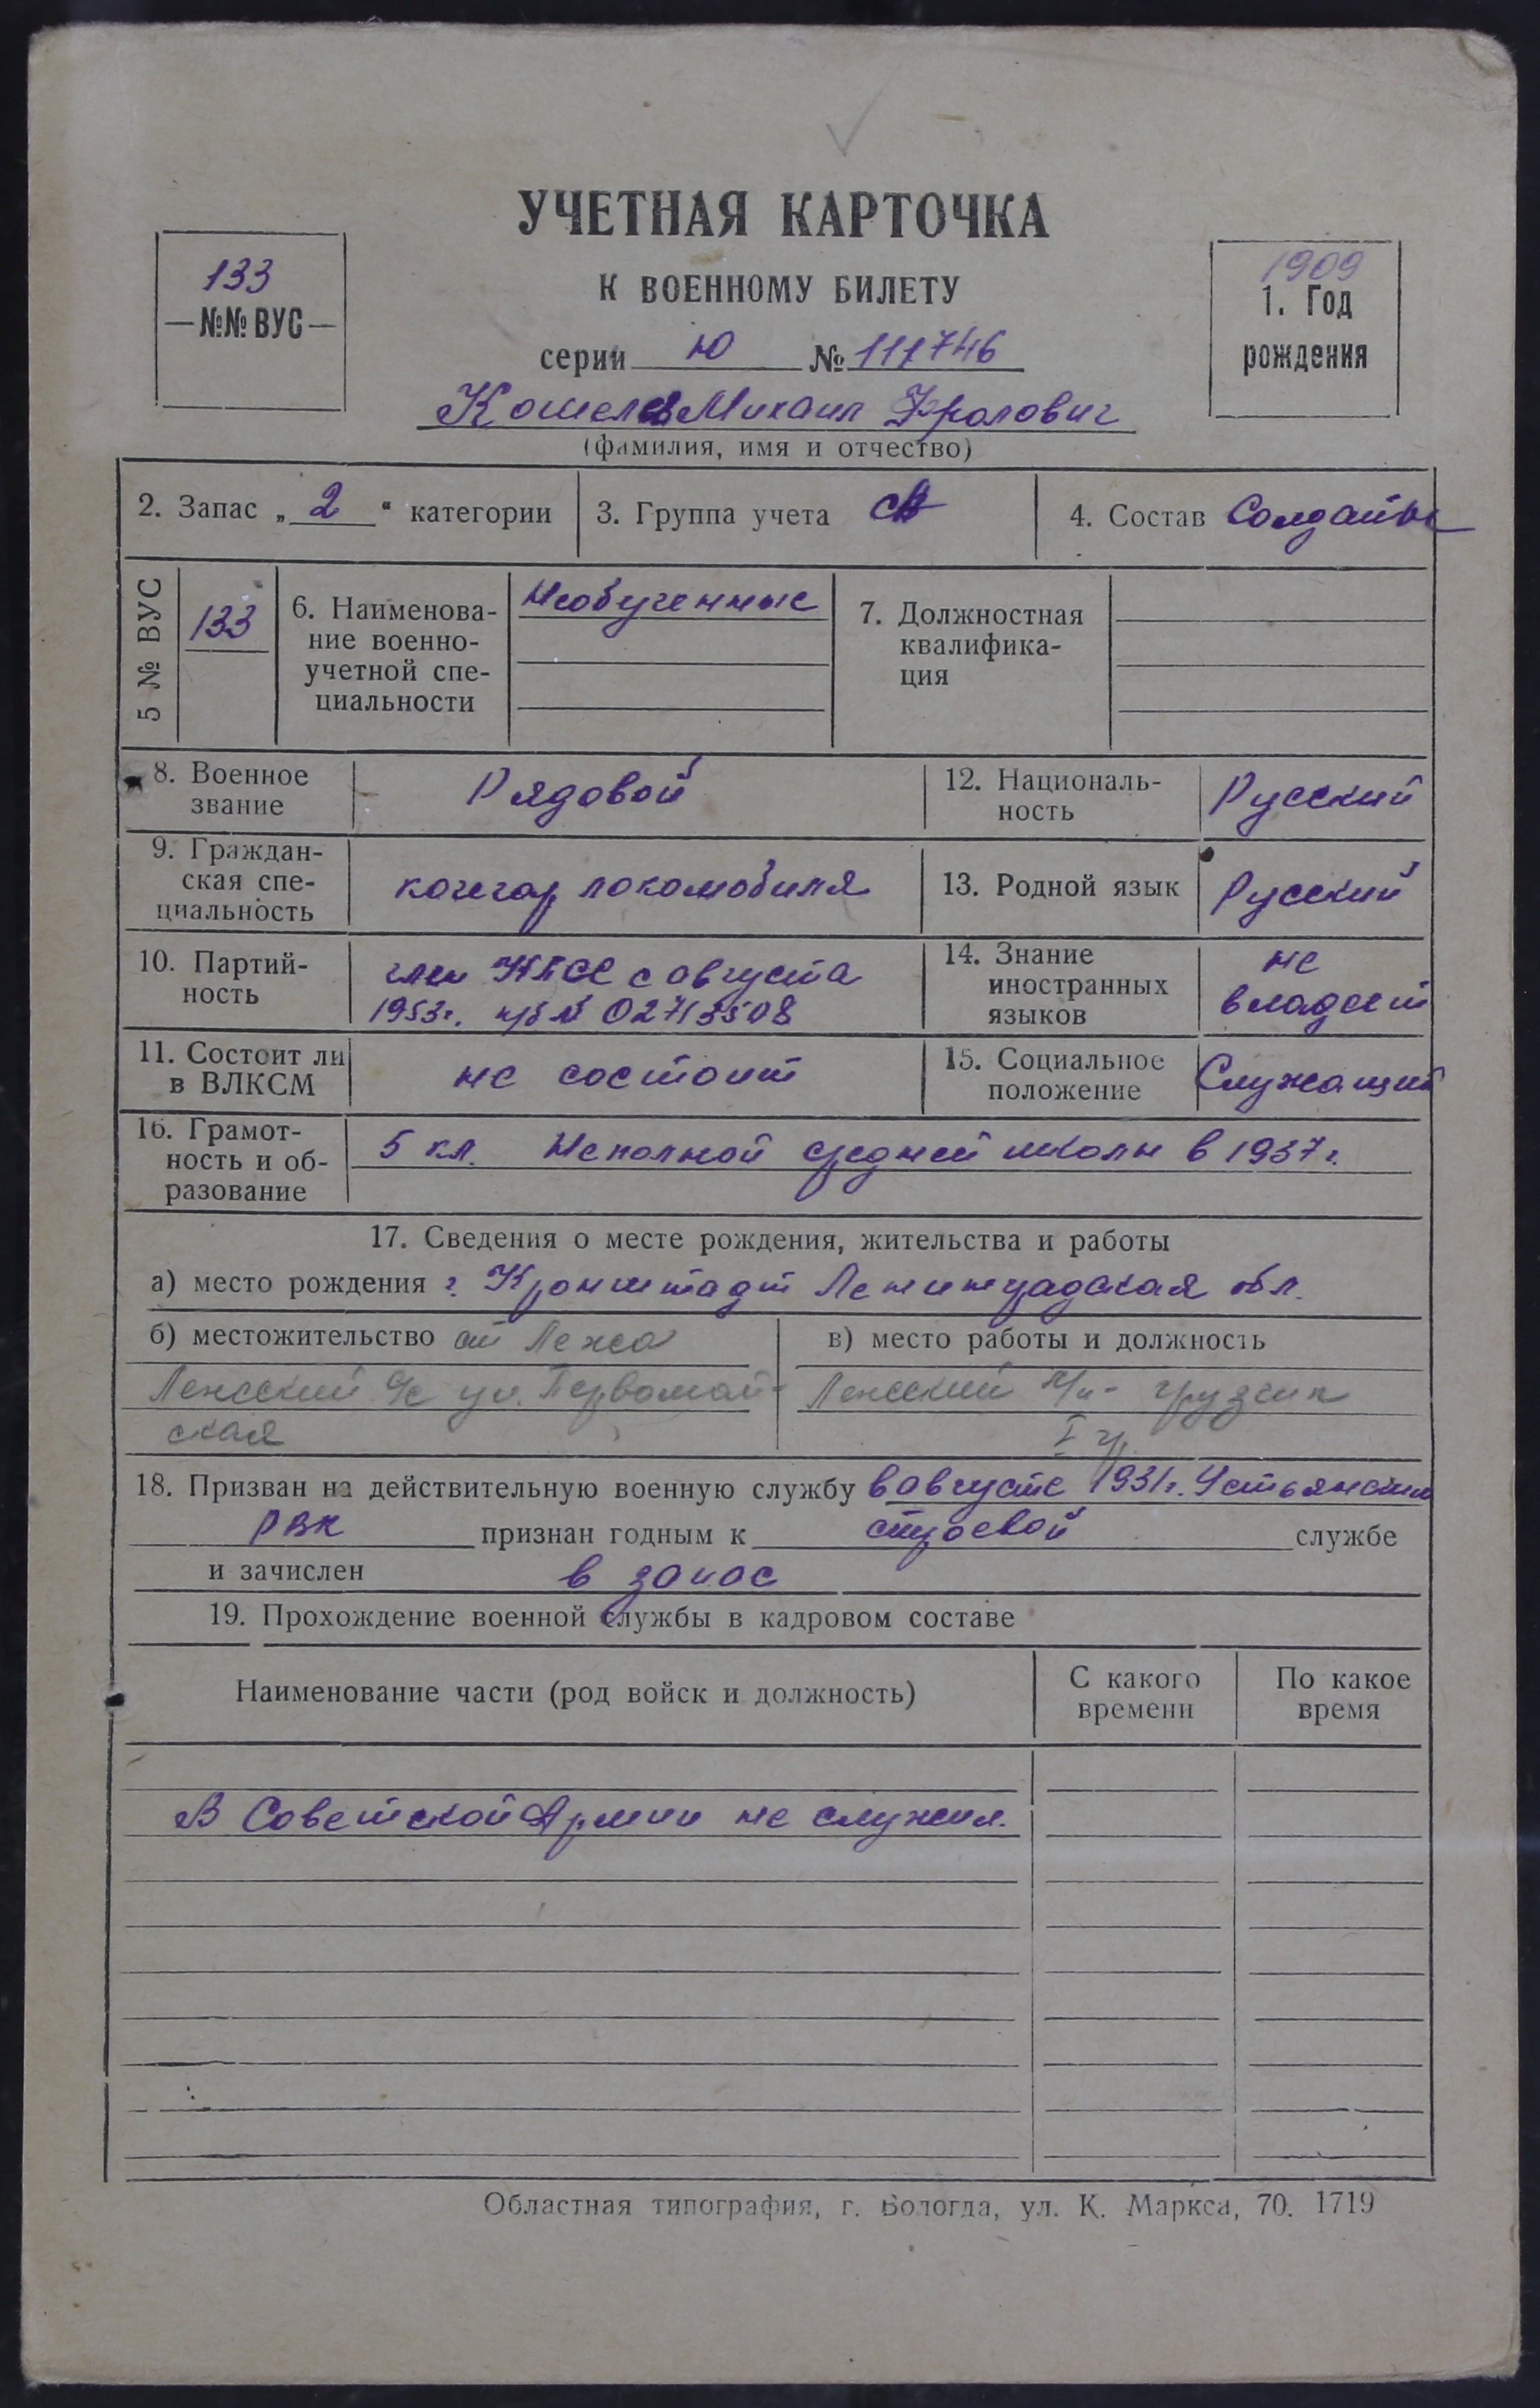 УЧЕТНАЯ КАРТОЧКА
К ВОЕННОМУ БИЛЕТУ
133
№№ ВУС
1909
1. Год
рождения
серии Ю № 111746
Кошелев Михаил Фролович
(фамилия, имя и отчество)
2. Запас „ 2 “ категории
3. Группа учета СА
4. Состав Солдаты
5 № ВУС
133
6. Наименова-
ние военно-
учетной спе-
циальности
Необученные
7. Должностная
квалифика-
ция
8. Военное
звание
Рядовой
12. Националь-
ность
Русский
9. Граждан-
ская спе-
циальность
кочегар локомобиля
13. Родной язык
Русский
10. Партий-
ность
член КПСС с августа
1953г. п/б № 02713508
14. Знание
иностранных
языков
не
владеет
11. Состоит ли
в ВЛКСМ
не состоит
15. Социальное
положение
Служащий
16. Грамот-
ность и об-
разование
5 кл. Неполной средней школы в 1937 г.
17. Сведения о месте рождения, жительства и работы
а) место рождения г. Кронштадт Ленинградская обл.
б) местожительство ст Лежа
Лежский с/с ул. Первомай-
ская
в) место работы и должность
Лежский л/п - грузчик
I гр
18. Призван на действительную военную службу в августе 1931г. Устьянским
РВК признан годным к строевой службе
и зачислен в запас
19. Прохождение военной службы в кадровом составе
Наименование части (род войск и должность)
С какого
времени
По какое
время
В Советской Армии не служил.
Областная типография, г. Вологда, ул. К. Маркса, 70. 1719